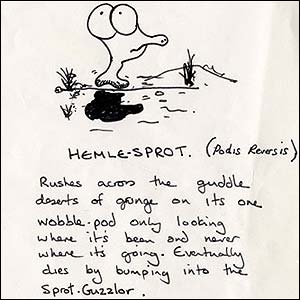 HEMLE-SPROT. (Podis Reversis)
Rushes across the guddle
deserts of gonge on its one
wobble-pod only looking
where it's been and never
where its going. Eventually
dies by bumping into the
Sprot-Guzzlor.